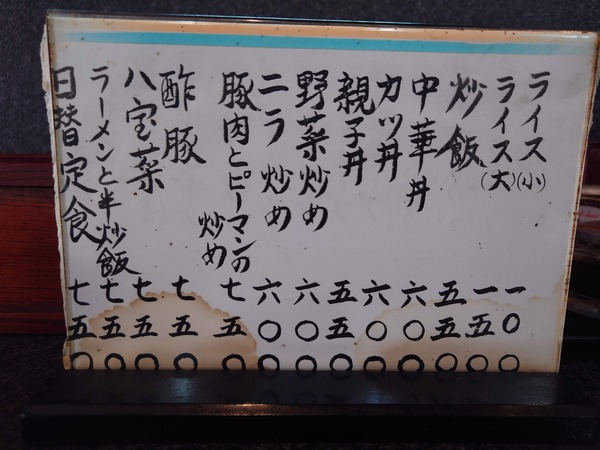 ライス(小) 一〇〇
ライス(大) 一五〇
炒飯 五五〇
中華丼 六〇〇
カツ丼 六〇〇
親子丼 五五〇
野菜炒め 六〇〇
ニラ炒め 六〇〇
豚肉とピーマンの
炒め 七五〇
酢豚 七五〇
八宝菜 七五〇
ラーメンと半炒飯 七五〇
日替定食 七五〇